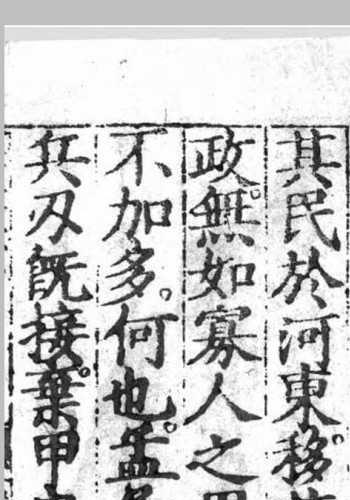 其民於河東。移
政。無如寡人之
不加多。何也。孟
兵刃既接。棄甲